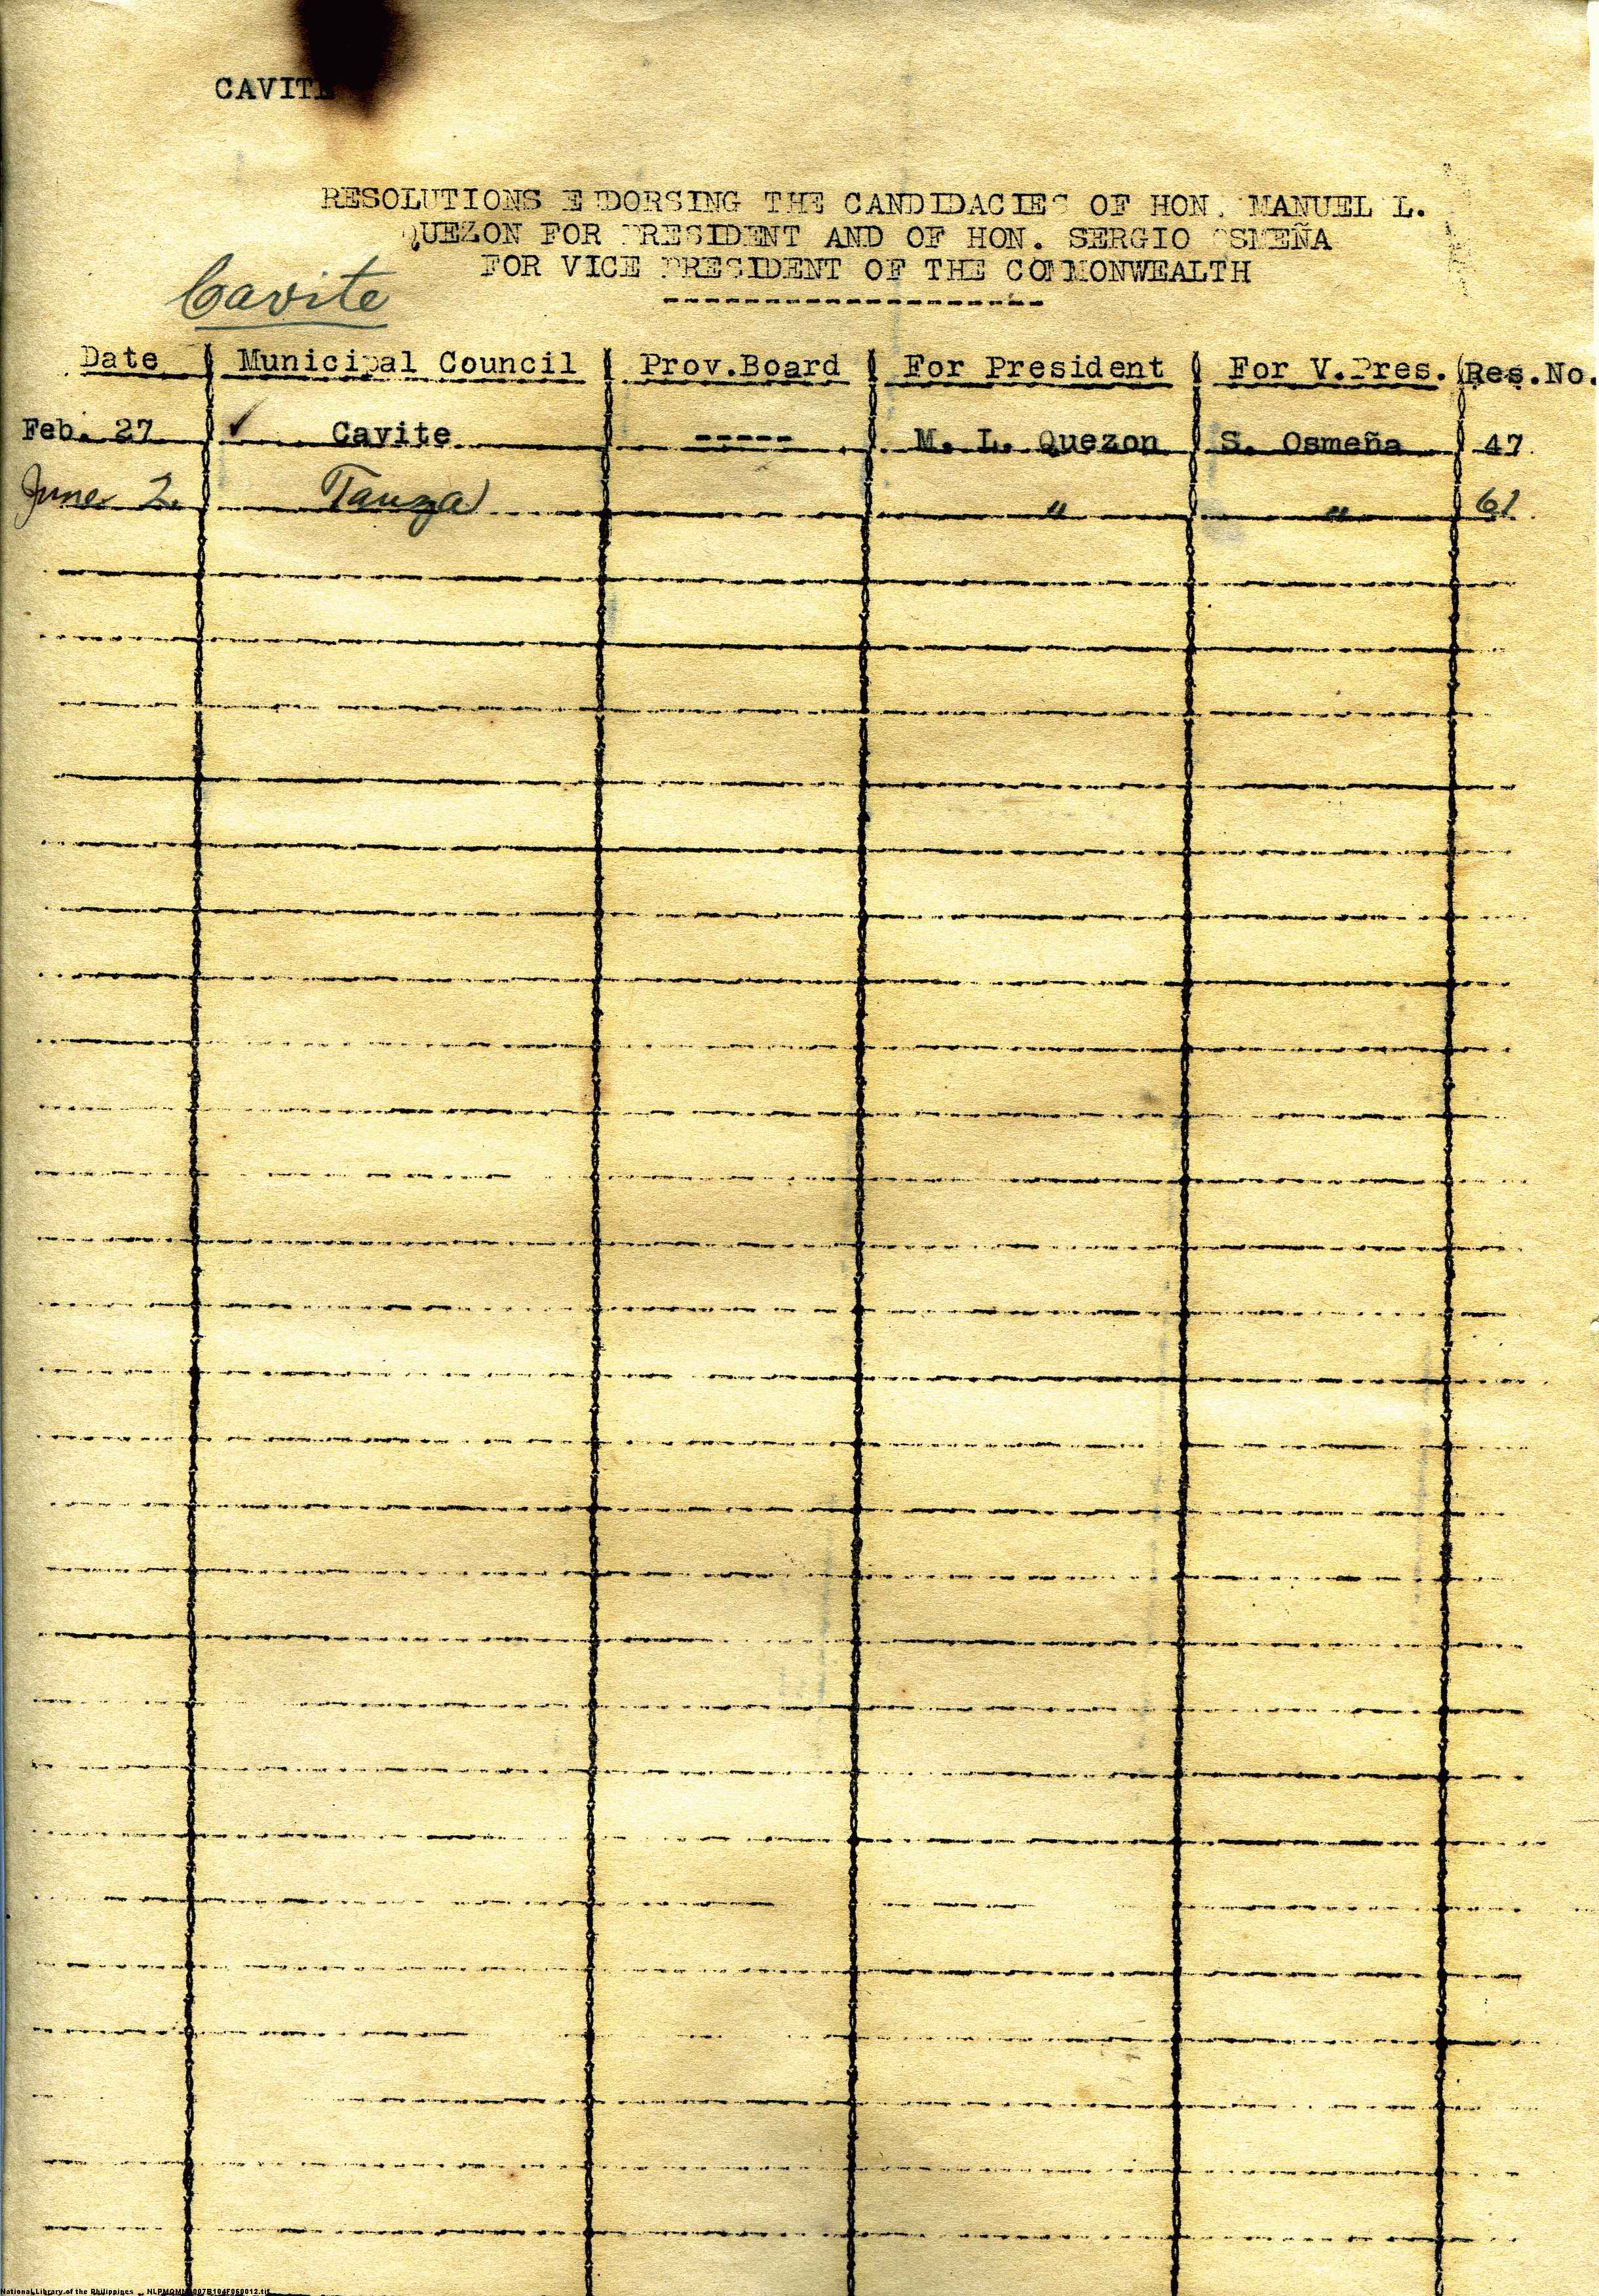 CAVITE
RESOLUTIONS ENDORSING THE CANDIDACIES OF HON. MANUEL L.
QUEZON FOR PRESIDENT AND OF HON. SERGIO OSMEÑA
FOR VICE PRESIDENT OF THE COMMONWEALTH
------------------
Cavite
Date Municipal Council Prov.Board For President For V.Pres. Res.No.
Feb. 27 ✓ Cavite ----- M. L. Quezon S. Osmeña 47
June 2 Tanza " " 61
National Library of the Philippines